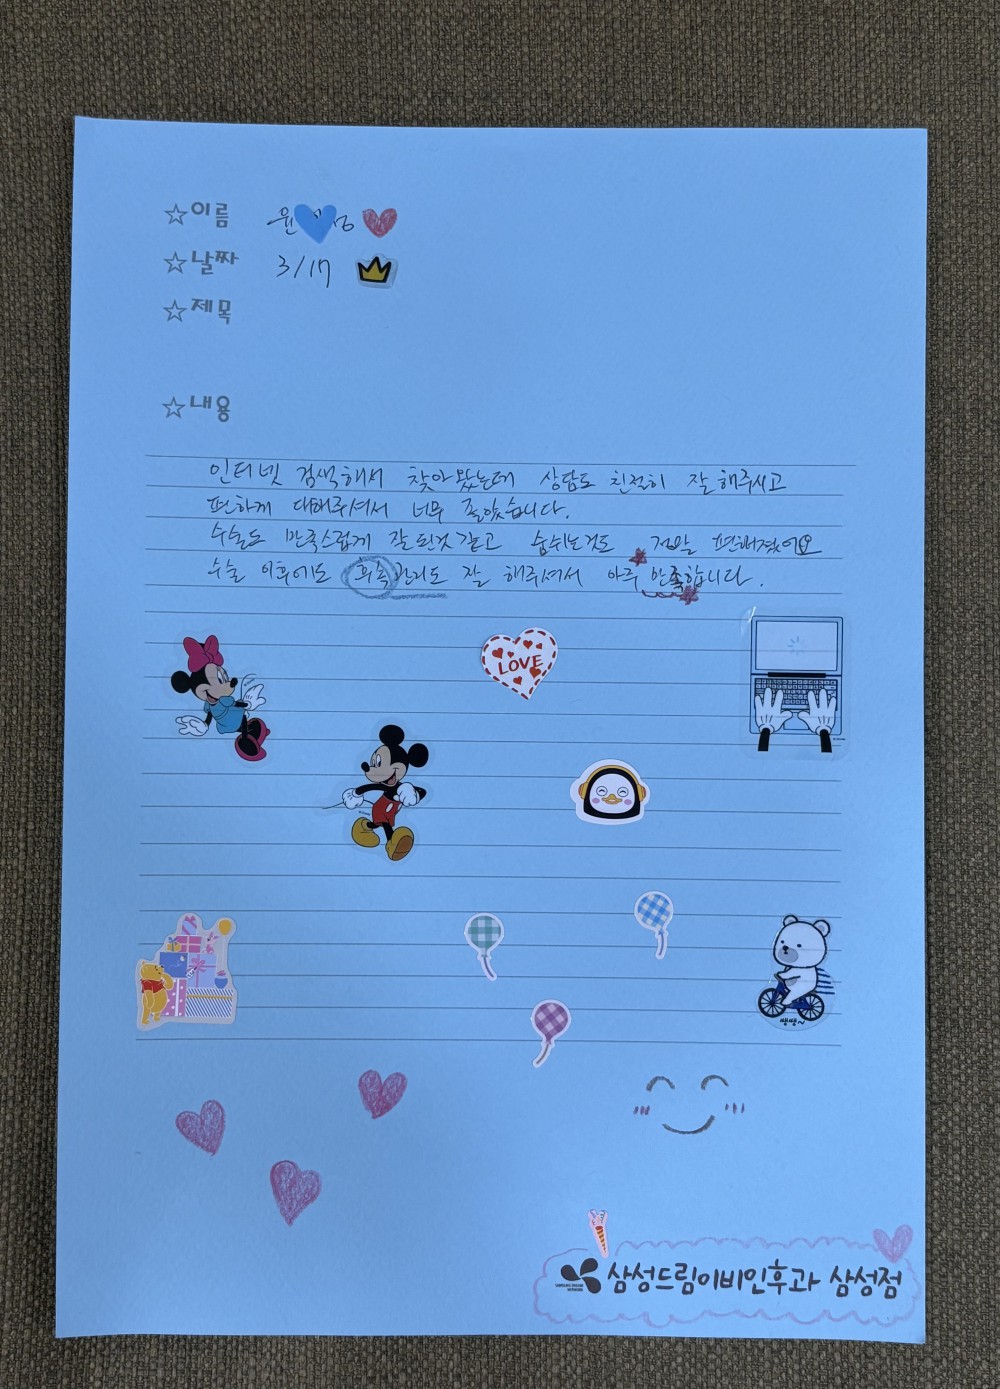 ☆이름 윤
☆날짜 3/17
☆제목
☆내용
인터넷 검색해서 찾아봤는데 상담도 친절히 잘해주시고
편하게 대해주셔서 너무 좋았습니다.
수술도 만족스럽게 잘된것같고 숨쉬는것도 정말 편해졌어요
수술 이후에도 후속관리도 잘 해주셔서 아주 만족합니다.
LOVE
쌩쌩~
삼성드림이비인후과 삼성점